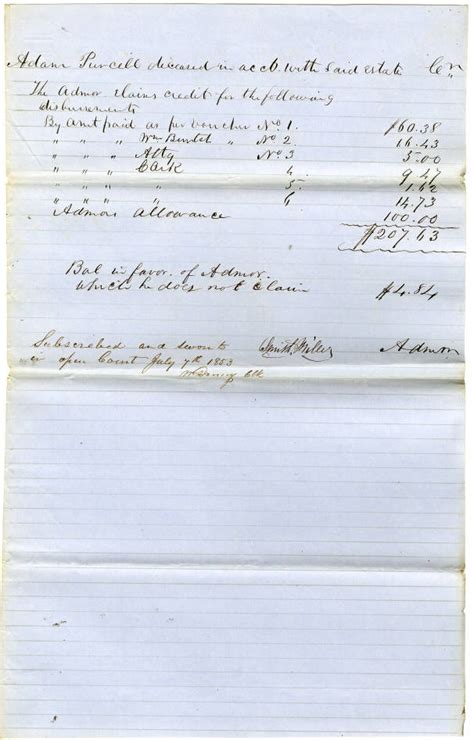 Adam Purcell deceased in acct with said estate Cr
The Admor claims credit for the following
disbursements
By Amt paid as per voucher No 1. $60.38
" " " Wm " No 2. 16.43
" " " Atty No 3 5.00
" " " Clark 4 9.47
" " " 5. 1.62
" " " 6 14.73
Admors allowance 100.00
$207.63
Bal in favor of Admor.
which he does not claim $4.84
Subscribed and sworn to Miller Admor
in open Court July 7th 1853
Clk